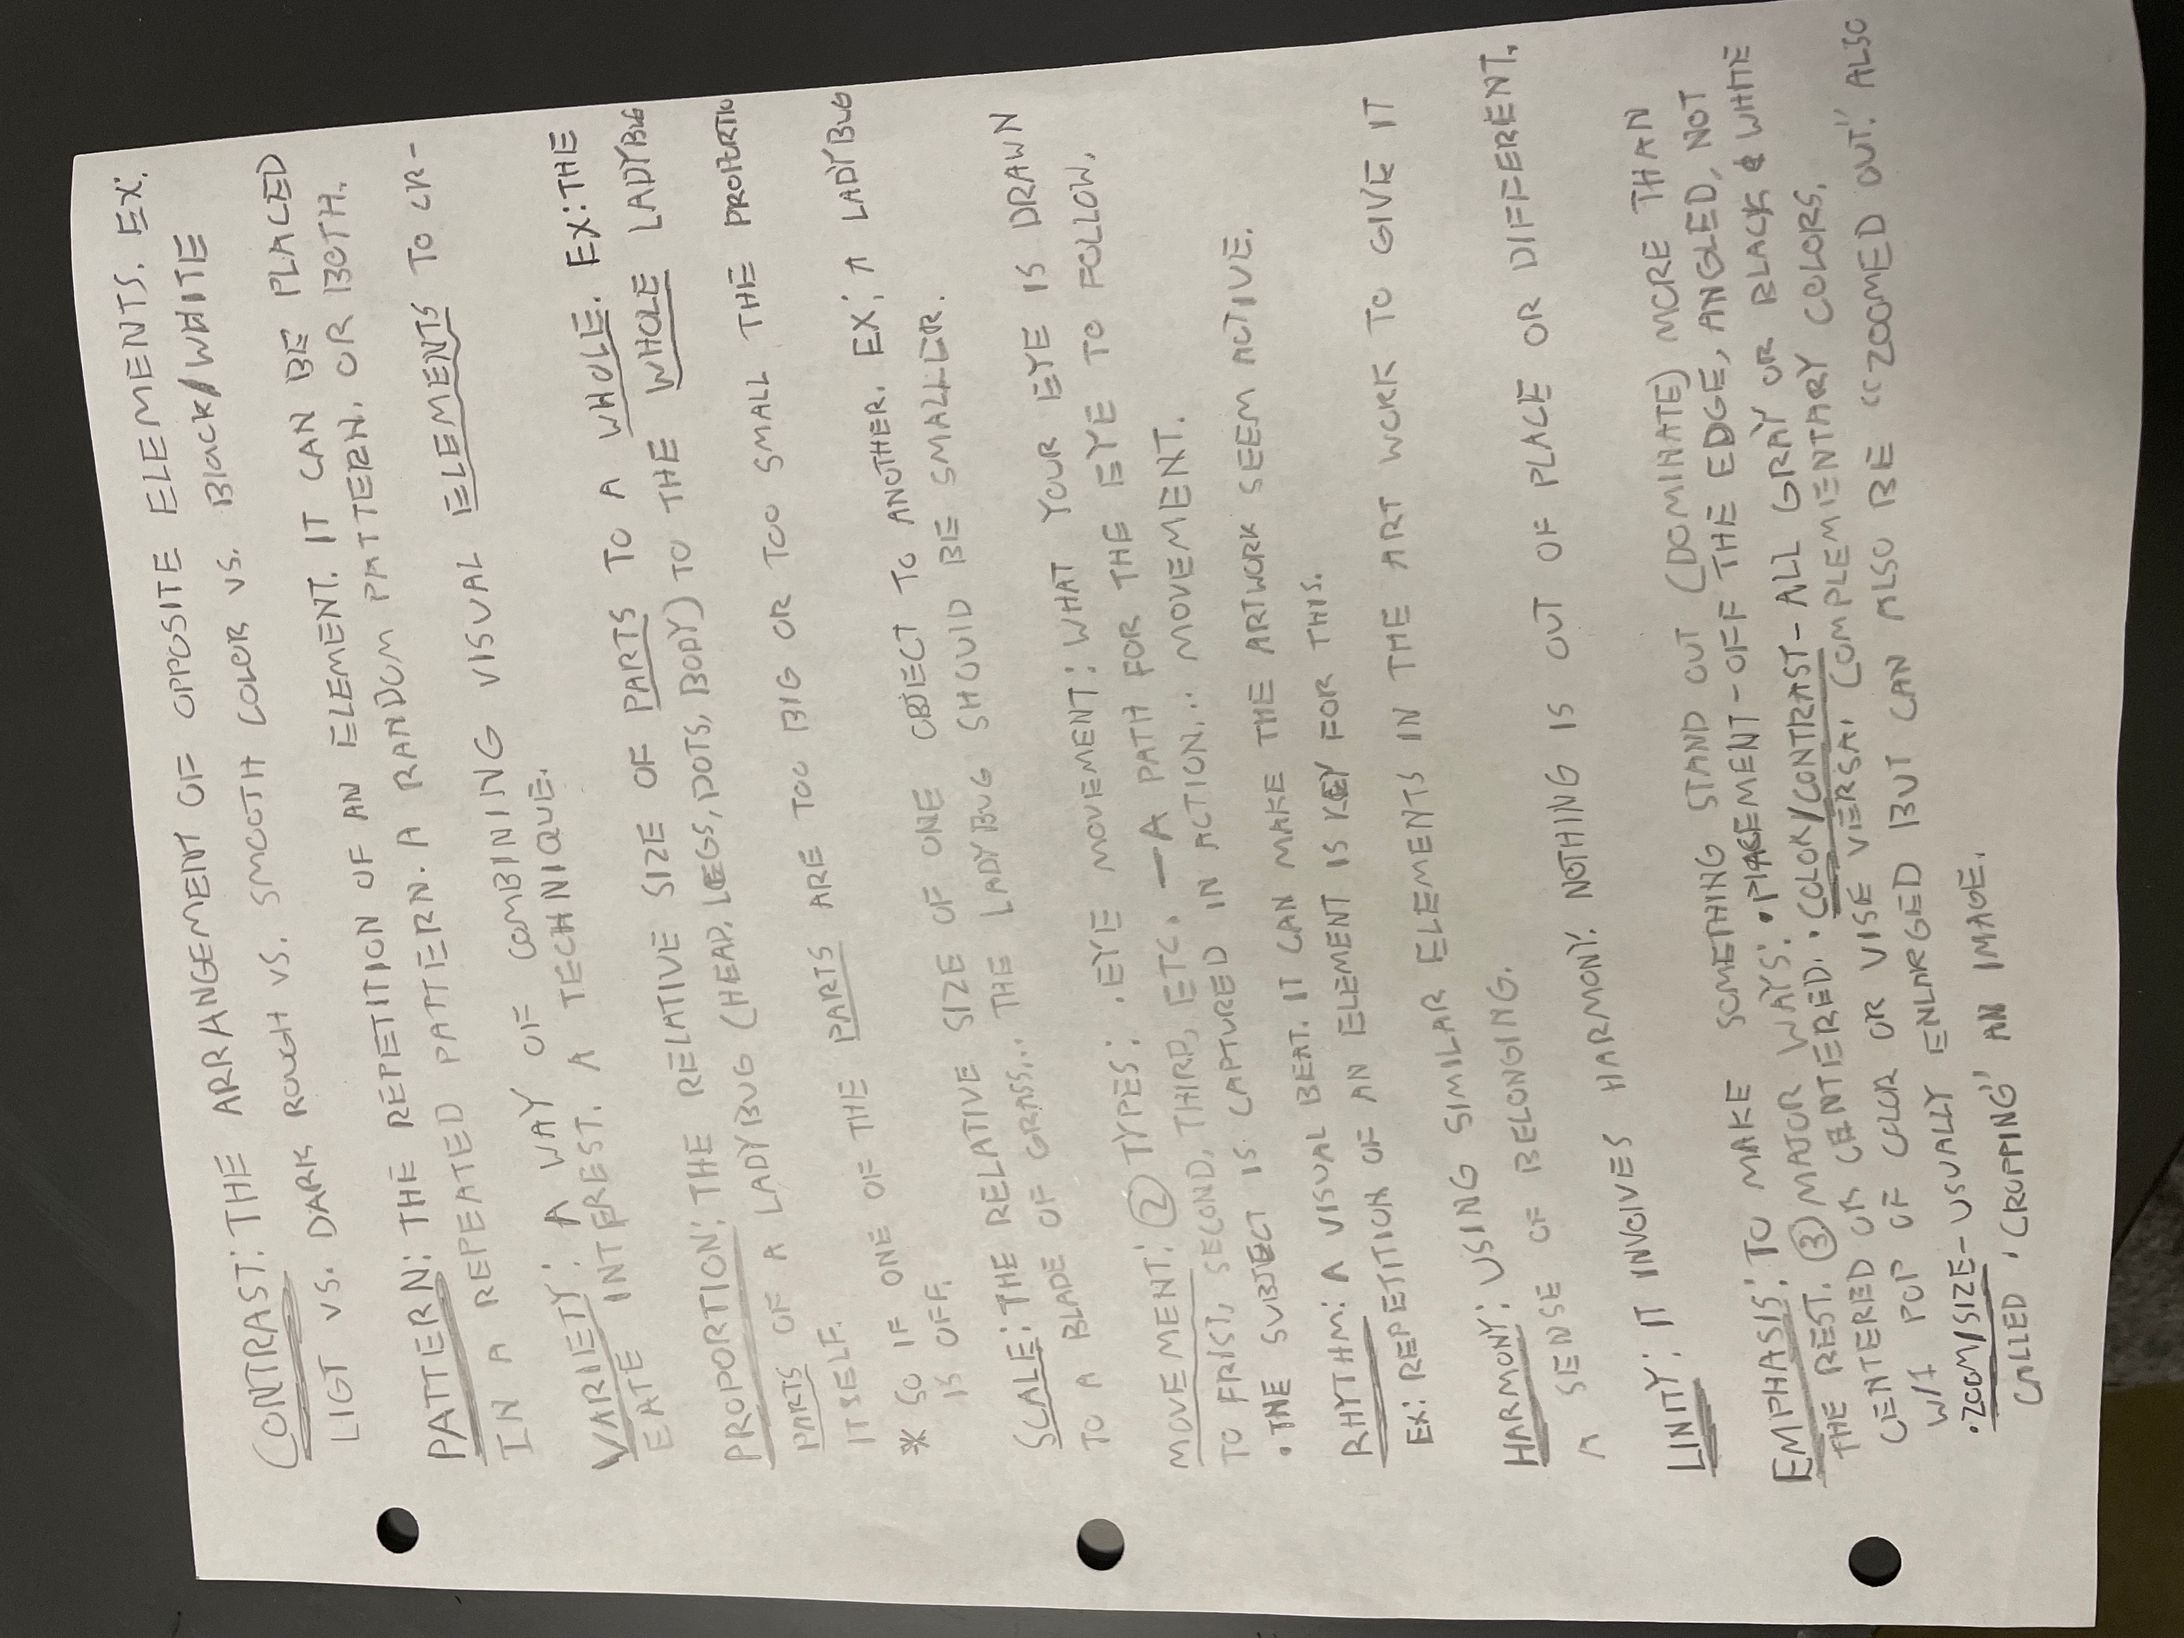 CONTRAST: THE ARRANGEMENT OF OPPOSITE ELEMENTS. EX:
LIGT VS. DARK ROUGH VS. SMOOTH COLOR VS. Black/WHITE
PATTERN: THE REPETITION OF AN ELEMENT. IT CAN BE PLACED
IN A REPEATED PATTERN. A RANDOM PATTERN. OR BOTH.
VARIETY: A WAY OF COMBINING VISUAL ELEMENTS TO CR-
EATE INTEREST. A TECHNIQUE.
PROPORTION: THE RELATIVE SIZE OF PARTS TO A WHOLE. EX: THE
PARTS OF A LADYBUG (HEAD, LEGS, DOTS, BODY) TO THE WHOLE LADYBUG
ITSELF.
* SO IF ONE OF THE PARTS ARE TOO BIG OR TOO SMALL THE PROPORTIO
IS OFF.
SCALE: THE RELATIVE SIZE OF ONE OBJECT TO ANOTHER. EX: A LADYBUG
TO A BLADE OF GRASS... THE LADYBUG SHOULD BE SMALLER.
MOVEMENT: 2 TYPES: • EYE MOVEMENT: WHAT YOUR EYE IS DRAWN
TO FRIST, SECOND, THIRD, ETC. — A PATH FOR THE EYE TO FOLLOW.
• THE SUBJECT IS CAPTURED IN ACTION... MOVEMENT.
RHYTHM: A VISUAL BEAT. IT CAN MAKE THE ARTWORK SEEM ACTIVE.
EX: REPETITION OF AN ELEMENT IS KEY FOR THIS.
HARMONY: USING SIMILAR ELEMENTS IN THE ART WORK TO GIVE IT
A SENSE OF BELONGING.
UNITY: IT INVOLVES HARMONY. NOTHING IS OUT OF PLACE OR DIFFERENT.
EMPHASIS: TO MAKE SOMETHING STAND OUT (DOMINATE) MORE THAN
THE REST. 3 MAJOR WAYS: • PLACEMENT - OFF THE EDGE, ANGLED, NOT
CENTERED OR CENTERED. • COLOR/CONTRAST - ALL GRAY OR BLACK & WHITE
W/1 POP OF COLOR OR VISE VERSA. COMPLEMENTARY COLORS.
• ZOOM/SIZE - USUALLY ENLARGED BUT CAN ALSO BE "ZOOMED OUT." ALSO
CALLED "CROPPING" AN IMAGE.